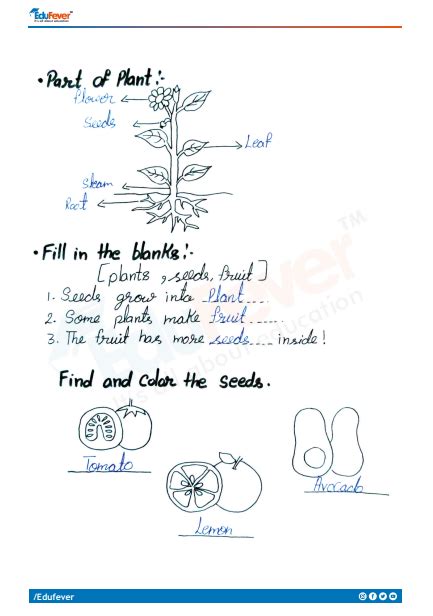 EduFever
It's all about education
• Part of Plant:-
Flower
Seeds
Leaf
Steam
Root
TM
• Fill in the blanks:-
[plants, seeds, fruit]
1. Seeds grow into Plant....
2. Some plants make fruit.....
3. The fruit has more seeds.... inside!
EduFever
It's all about education
Find and color the seeds.
Tomato
Avocado
Lemon
/Edufever